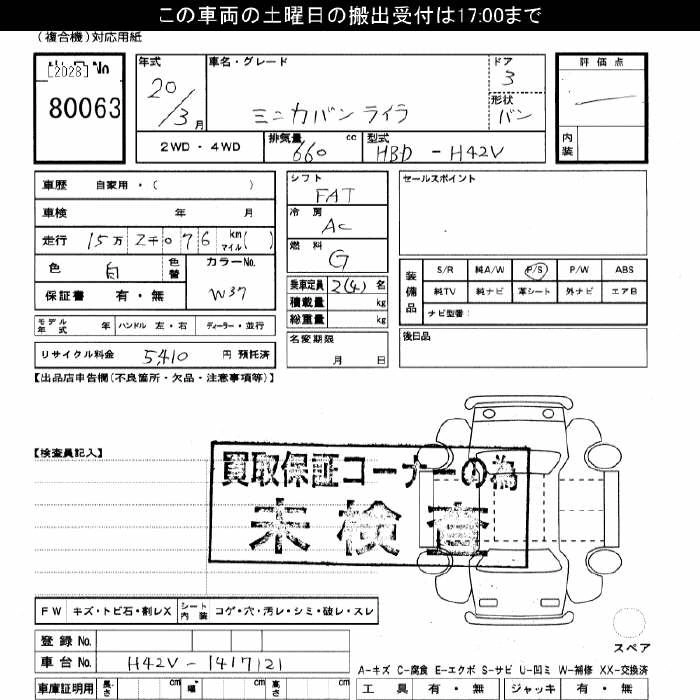 この車両の土曜日の搬出受付は17:00まで
(複合機)対応用紙
[2028] No
80063
年式
20/3月
車名・グレード
ミニカバン ライラ
ドア
3
形状
バン
評価点
内装
2WD・4WD
排気量 660 cc
型式 HBD - H42V
車歴 自家用・( )
車検 年 月
走行 15万 2千0 76 km マイル( )
色 白 色替
カラーNo. W37
保証書 有・無
シフト
FAT
冷房
AC
燃料
G
乗車定員 2(4) 名
積載量 kg
総重量 kg
名変期限
月 日
セールスポイント
装備品
S/R 純A/W P/S P/W ABS
純TV 純ナビ 革シート 外ナビ エアB
ナビ型番:
後日品
モデル年式 年 ハンドル 左・右 ディーラー・並行
リサイクル料金 5,410 円 預託済
【出品店申告欄(不良箇所・欠品・注意事項等)】
【検査員記入】
買取保証コーナーの為
未検査
FW キズ・トビ石・割レX シート内装 コゲ・穴・汚レ・シミ・破レ・スレ
スペア
登録No.
車台No. H42V-1417121
A-キズ C-腐食 E-エクボ S-サビ U-凹ミ W-補修 XX-交換済
車庫証明用 長さ cm 幅 cm 高さ cm
工具 有・無 ジャッキ 有・無